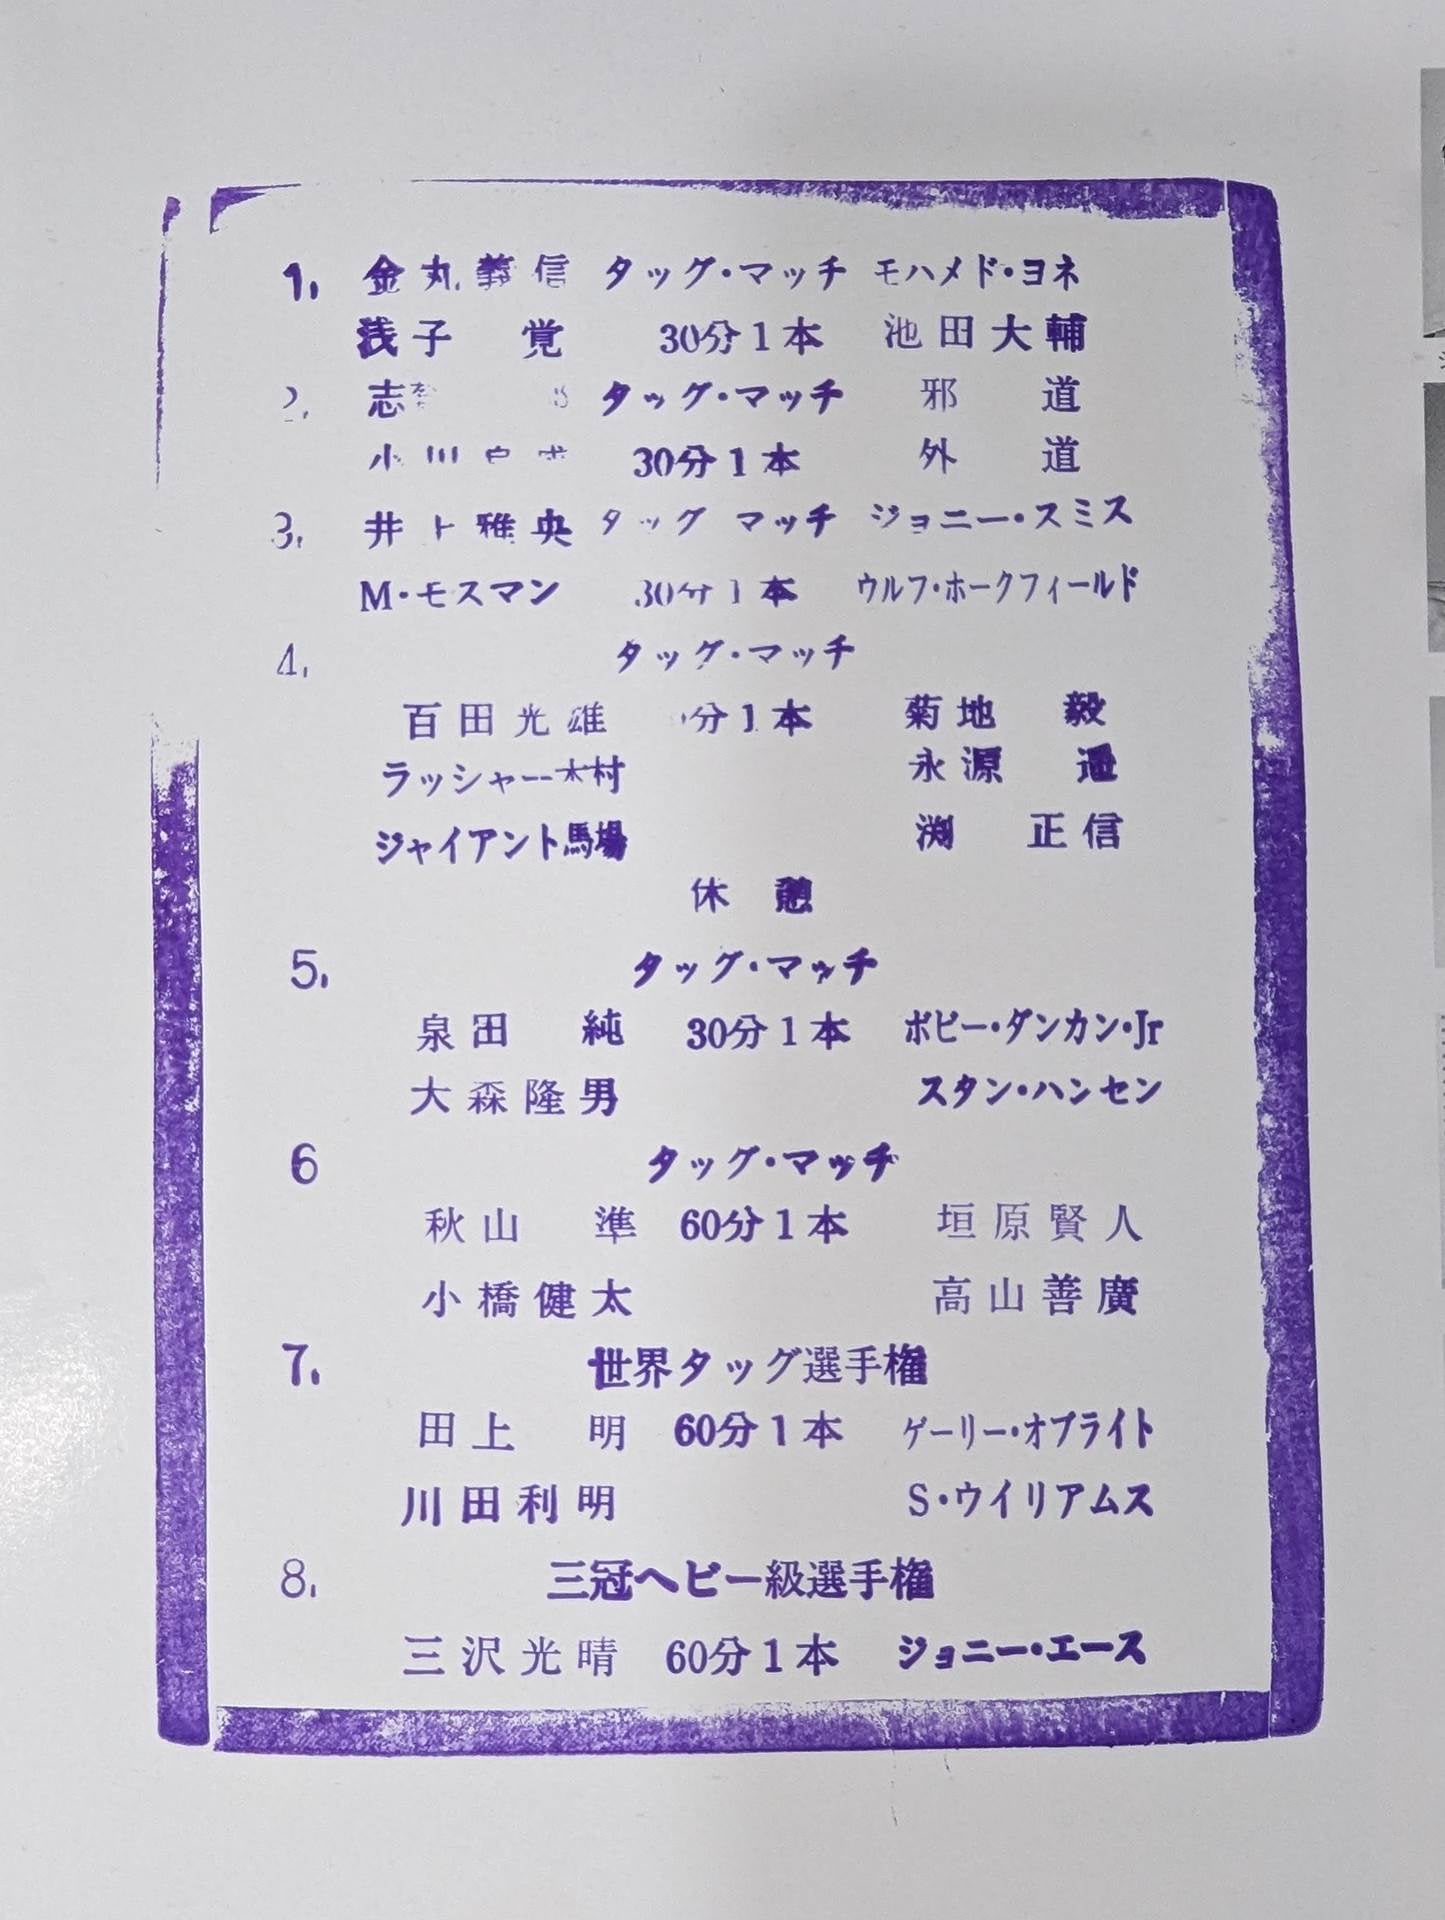 1. 金丸義信 タッグ・マッチ モハメド・ヨネ
浅子 覚 30分1本 池田大輔
2. 志 タッグ・マッチ 邪道
小川良成 30分1本 外道
3. 井上雅央 タッグ マッチ ジョニー・スミス
M・モスマン 30分1本 ウルフ・ホークフィールド
4. タッグ・マッチ
百田光雄 分1本 菊地 毅
ラッシャー木村 永源 遥
ジャイアント馬場 渕 正信
休憩
5. タッグ・マッチ
泉田 純 30分1本 ボビー・ダンカン・Jr
大森隆男 スタン・ハンセン
6 タッグ・マッチ
秋山 準 60分1本 垣原賢人
小橋健太 高山善廣
7. 世界タッグ選手権
田上 明 60分1本 ゲーリー・オブライト
川田利明 S・ウイリアムス
8. 三冠ヘビー級選手権
三沢光晴 60分1本 ジョニー・エース